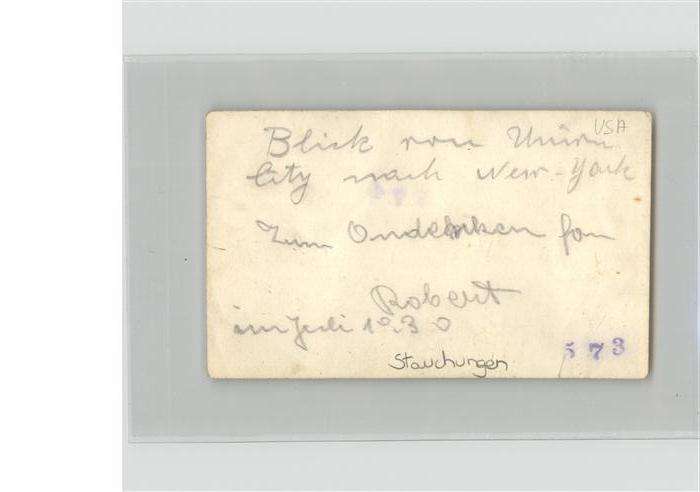 USA
Blick von Union
City nach New-York
Zum Ondenken fon
Robert
im Juli 1930
Stauchungen
573